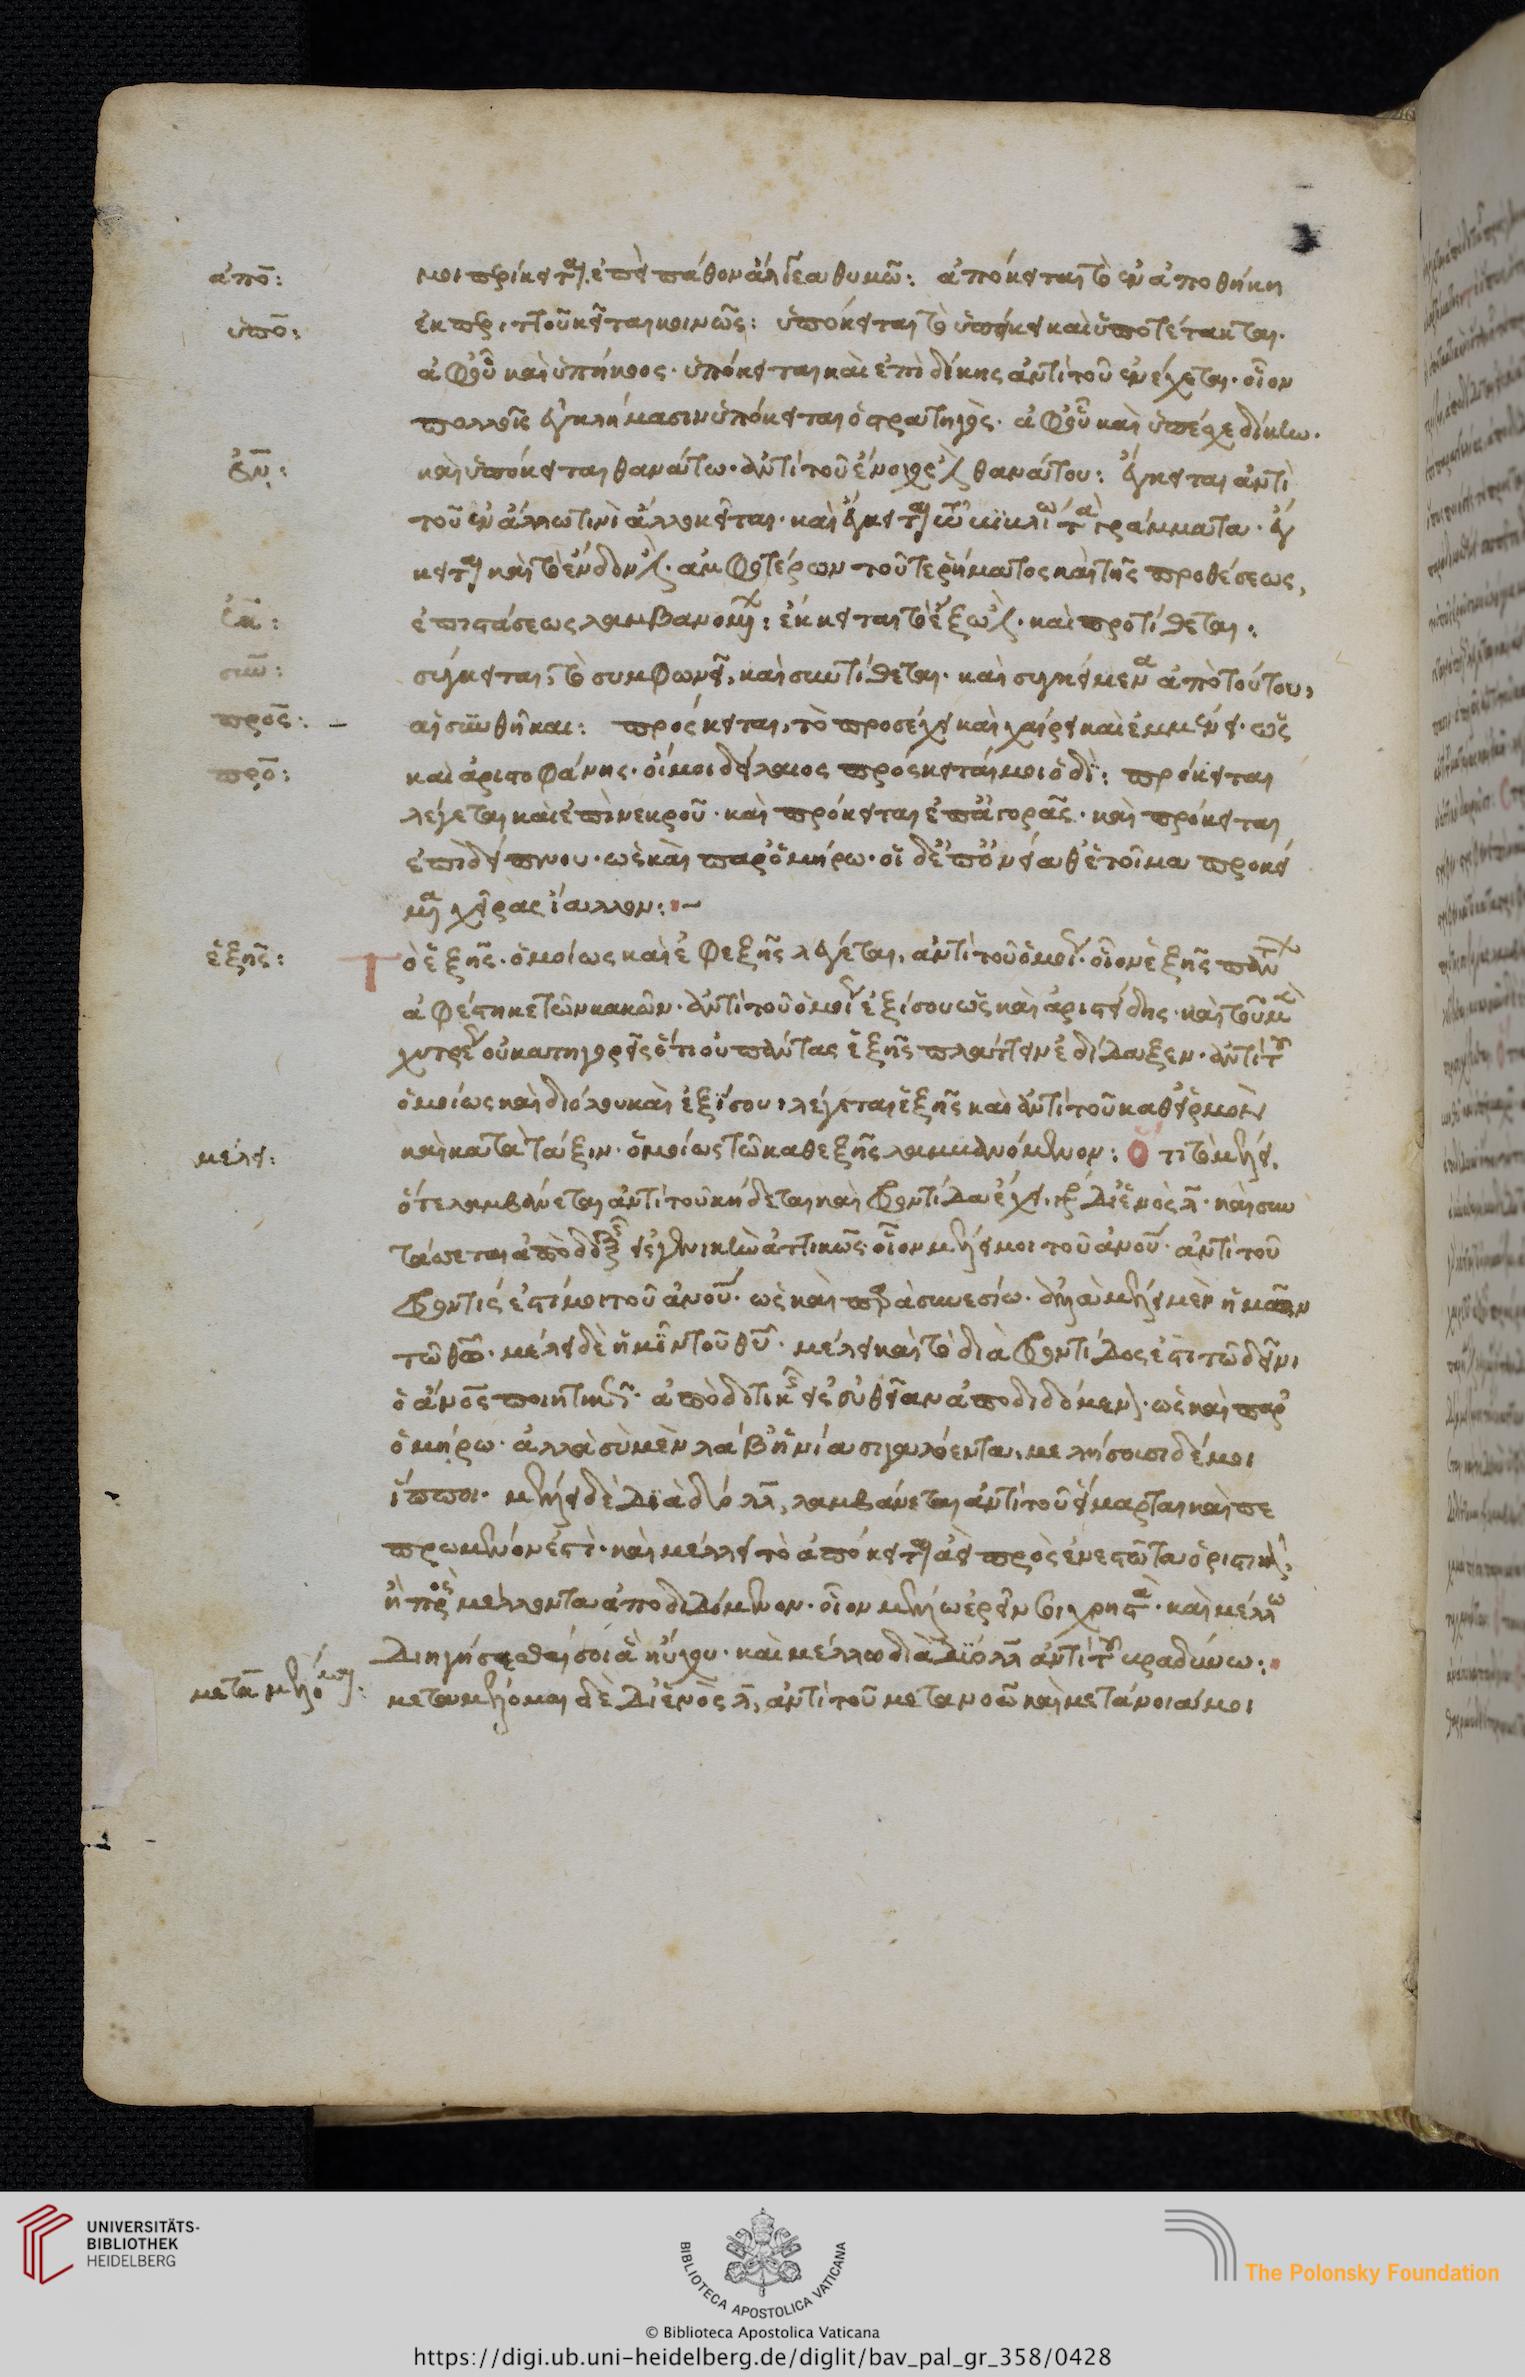 ἀπο:
μοι περίκειται. ἐπεὶ πάθον ἄλγεα θυμῶ: ἀπόκειται τὸ ἐν ἀποθήκη
ὑπο:
ἐκ περιττοῦ κεῖται κοινῶς: ὑπόκειται τὸ ὑπείκει καὶ ὑποτέτακται.
ἀφοῦ καὶ ὑπήκοος. ὑπόκειται καὶ ἐπὶ δίκης ἀντὶ τοῦ ἐνέχεται. οἷον
πολλοῖς ἐγκλήμασιν ὑπόκειται ὁ στρατηγὸς. ἀφοῦ καὶ ὑπέσχε δίκην.
ἐν:
καὶ ὑπόκειται θανάτω. ἀντὶ τοῦ ἔνοχός ἐστι θανάτου: ἔγκειται ἀντὶ
τοῦ ἐν ἄλλω τινὶ ἄλλο κεῖται. καὶ ἔγκειται τὰ γράμματα. ἔγ
κειται καὶ τὸ ἔνδον ἐστι. ἀμφοτέρων τοῦ τε ῥήματος καὶ τῆς προθέσεως,
ἐκ:
ἐπιστάσεως λαμβανομένων: ἔκκειται τὸ ἔξω ἐστι. καὶ προτίθεται:
συν:
σύγκειται, τὸ συμφωνεῖ, καὶ συντίθεται. καὶ συγκείμενα ἀπὸ τούτου,
πρός:
αἱ συνθῆκαι: πρόςκειται, τὸ προσέχει καὶ χαίρει καὶ ἐμμένει. ὡς
πρό:
καὶ ἀριστοφάνης. οἴμοι δείλαιος πρόςκειταί μοι ὁδὶ: πρόκειται
λέγεται καὶ ἐπὶ νεκροῦ. καὶ πρόκειται ἐπ' ἀγορᾶς. καὶ πρόκειται
ἐπὶ δείπνου. ὡς καὶ παρ' ὁμήρω. οἱ δ' ἐπ' ὀνείαθ' ἑτοῖμα προκεί
μενα χεῖρας ἴαλλον:
ἑξῆς:
Τὸ ἑξῆς. ὁμοίως καὶ ἐφεξῆς λέγεται, ἀντὶ τοῦ ὁμοῦ. οἷον ἑξῆς πάντων
ἀφέστηκε τῶν κακῶν. ἀντὶ τοῦ ὁμοῦ ἐξίσου ὡς καὶ ἀριστείδης. καὶ τοῦ μὲν
χυτρέως οὐ κατηγορεῖς ὅτι οὐ πάντας ἑξῆς πλάττειν ἐδίδαξεν. ἀντὶ τοῦ
ὁμοίως καὶ διόλου καὶ ἐξίσου, λέγεται ἑξῆς καὶ ἀντὶ τοῦ καθ' εἱρμὸν
μέλει:
καὶ κατὰ τάξιν. ὁμοίως τῶ καθεξῆς λαμβανόμενον: Ὅτι τὸ μέλει,
ὅτε λαμβάνεται ἀντὶ τοῦ κήδεται καὶ φροντίδα ἔχει, γράφεται δι' ἑνὸς λ. καὶ συν
τάττεται ἀπὸ δοτικῆς εἰς γενικὴν ἀττικῶς οἷον μέλει μοι τοῦ ἀνου. ἀντὶ τοῦ
φροντίς ἐστί μοι τοῦ ἀνου. ὡς καὶ παρὰ συνεσίω. ἀλλὰ μέλει μὲν ἡμῶν
τῶ θω. μέλει δὲ ἡμῖν τοῦ θυ. μέλει καὶ τὸ διὰ φροντίδος ἐστὶ τῶ δεῖνι
ὁ ἀνος ποιητικῶς. ἀπὸ δοτικῆς εἰς εὐθεῖαν ἀποδιδόμενον. ὡς καὶ παρ'
ὁμήρω. ἀλλὰ σὺ μὲν λάβ' ἡνία σιγαλόεντα, μελήσουσι δέ μοι
ἵπποι. μέλλει δὲ διὰ δύο λλ, λαμβάνεται ἀντὶ τοῦ εἵμαρται καὶ πε
πρωμένον ἐστὶ. καὶ μέλλει τὸ ἀπόκειται ἀεὶ πρὸς ἐνεστῶτα ὁριστικῶς,
ἢ πρὸς μέλλοντα ἀποδιδόμενον. οἷον μέλλω ἐρεῖν σοι χρηστὰ. καὶ μέλλω
διηγήσασθαί σοι ἃ ἤκουον. καὶ μέλλω διὰ δύο λλ ἀντὶ τοῦ βραδύνω:
μεταμέλομαι:
μεταμέλομαι δὲ δι' ἑνὸς λ, ἀντὶ τοῦ μετανοῶ καὶ μετάνοιά μοι
UNIVERSITÄTS-
BIBLIOTHEK
HEIDELBERG
BIBLIOTECA APOSTOLICA VATICANA
The Polonsky Foundation
© Biblioteca Apostolica Vaticana
https://digi.ub.uni-heidelberg.de/diglit/bav_pal_gr_358/0428